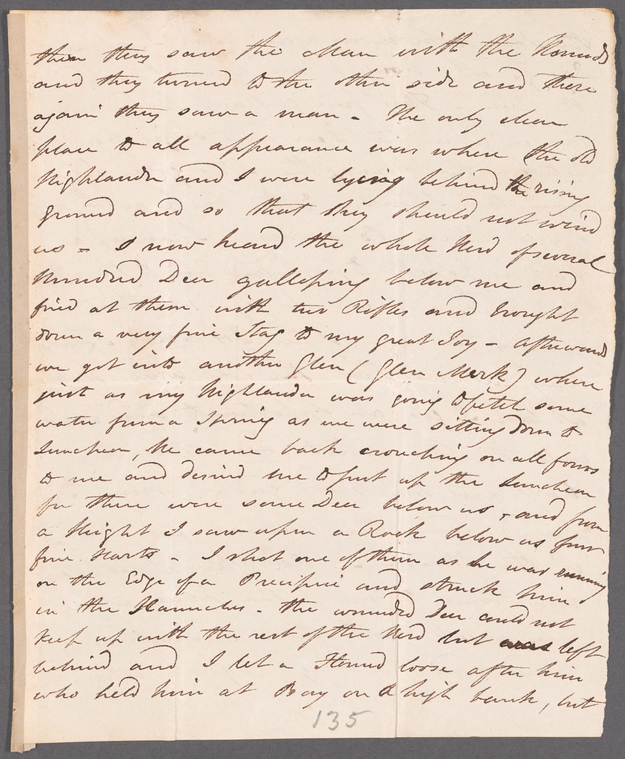 then they saw the Man with the Hounds
and they turned to the other side and there
again they saw a man - the only clear
place to all appearance was where the old
Highlander and I were lyeing behind the rising
ground and so that they should not wind
us - I now heard the whole Herd of several
Hundred Deer galloping below me and
fired at them with two Rifles and brought
down a very fine Stag to my great Joy - afterwards
we got into another Glen (Glen Mark) where
just as my Highlander was going to fetch some
water from a Spring as we were sitting down to
Luncheon, He came back crouching on all fours
to me and desired me to put up the Luncheon
for there were some Deer below us, and from
a Height I saw upon a Rock below us four
fine Harts - I shot one of them as he was running
on the Edge of a Precipice and struck him
in the Haunches - the wounded Deer could not
keep up with the rest of the Herd but was left
behind and I let a Hound loose after him
who held him at Bay on a high bank, but
135